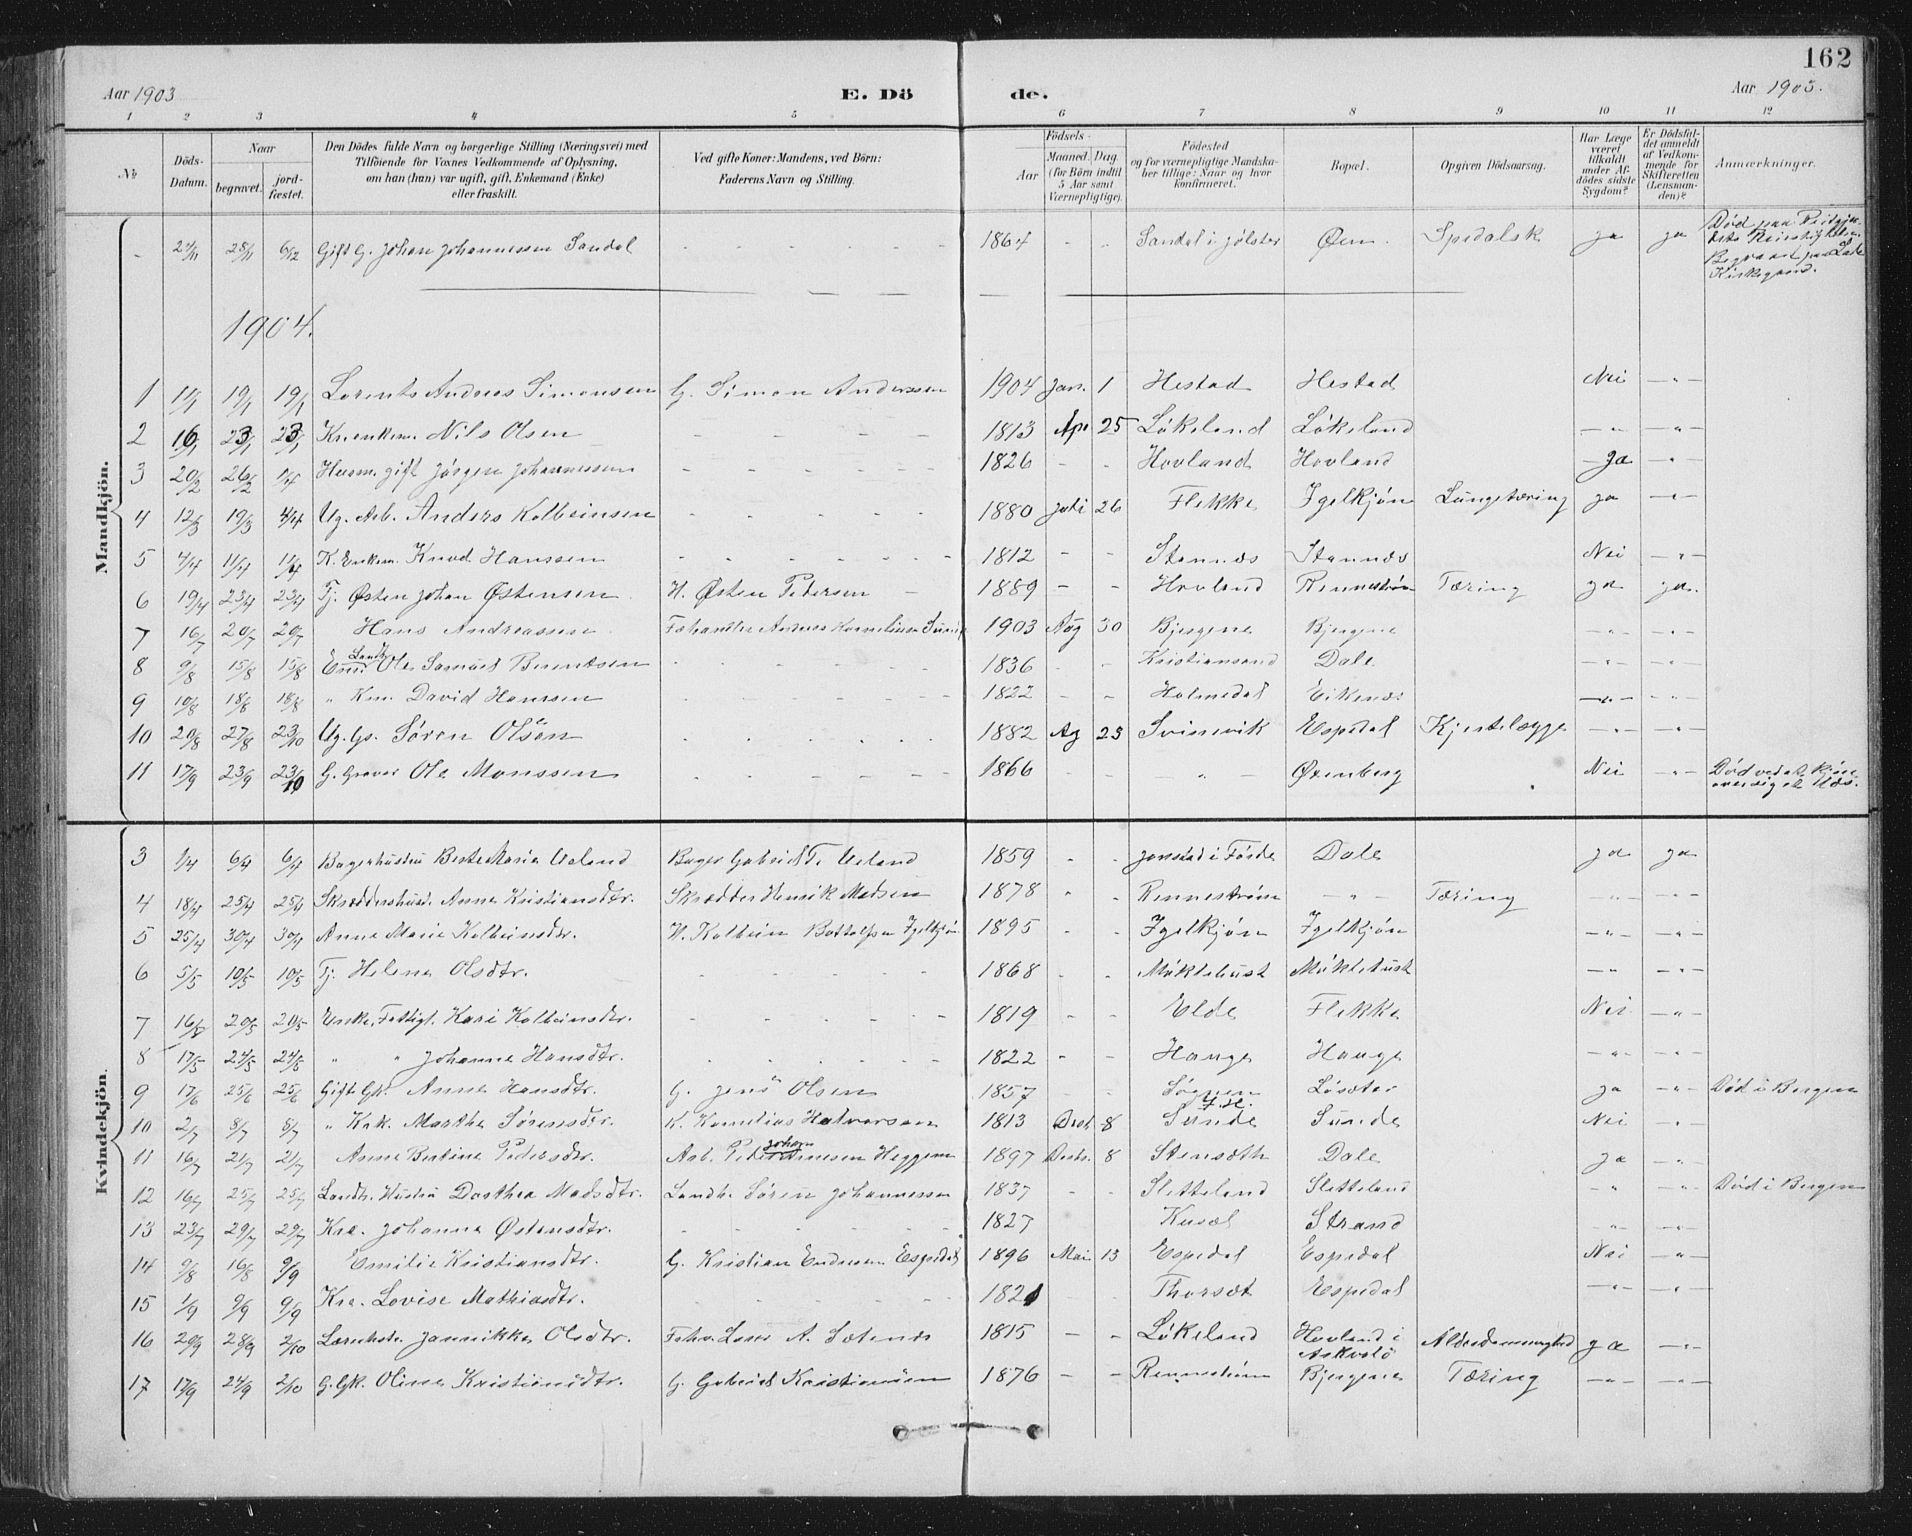 162
Aar 1903 E. Dö de. Aar 1903.
1 2 3 4 5 6 7 8 9 10 11 12
№ Döds-Datum. Naar begravet. jordfæstet. Den Dödes fulde Navn og borgerlige Stilling (Næringsvei) med Tilföiende for Voxnes Vedkommende af Oplysning, om han (hun) var ugift, gift, Enkemand (Enke) eller fraskilt. Ved gifte Koner: Mandens, ved Börn: Faderens Navn og Stilling. Födsels- Aar Maaned. Dag. (for Börn indtil 5 Aar samt Værnepligtige). Födested og for værnepligtige Mandskaber tillige: Naar og hvor konfirmeret. Bopæl. Opgiven Dödsaarsag. Har Læge været tilkaldt under Afdödes sidste Sygdom? Er Dödsfaldet anmeldt af Vedkommende for Skifteretten (Lensmanden)? Anmærkninger.
Mandkjön.
- 24/11 28/11 6/12 Gift G. Johan Johannessen Sandal - - - - 1864 - - Sandal i Jølster Øen. Spedalsk ja ja Død paa Reitgjerdets Begravet paa Lade Kirkegaard.
1904.
1 11/1 19/1 19/1 Lorents Andreas Simonsen G. Simon Anderssen 1904 Jan. 1 Hestad Hestad Nei - " -
2 16/1 23/1 23/1 Nils Olsen - - - - 1813 Apr 25 Løkeland Løkeland - " - - " -
3 20/2 26/2 1/4 Husm. gift Jørgen Johannessen - - - - 1826 - - Hovland Hovland ja - " -
4 12/3 19/3 4/4 Ug. Arb. Anders Kolbeinsen - - - - 1880 Juli 26 Flekke Igelkjøn Lungetæring ja - " -
5 4/4 11/4 11/4 K. Enkem. Knud Hanssen - - - - 1812 - - Stannæs Stannæs Nei - " -
6 19/4 23/4 23/4 Tj. Østen Johan Østensen H. Østen Petersen - 1889 - - Hovland Rennestrøm Tæring ja ja.
7 16/7 20/7 20/7 Hans Andreassen Andreas Kornelius 1903 Aug 30 Bjergene Bjergene - " - - " -
8 9/8 15/8 15/8 Landh. Enm. Ole Samuel Berentsen - - - - 1836 - - Kristiansand Dale - " - - " -
9 10/8 18/8 18/8 " Km. David Hanssen - - - - 1822 - - Holmedal Eikenæs - " - - " -
10 20/8 27/8 23/10 Ug. Gs. Søren Olsen - - - - 1882 Ag 25 Svinevik Espedal - " - - " -
11 17/9 23/9 23/10 G. Graver Ole Monssen - - - - 1866 - " - Øvenberg Nei - " - Død ved
Kvindekjön.
3 1/4 6/4 6/4 Bagerhustru Berte Marie Ueland Bager Gabriel T. Ueland 1859 - - i Førde Dale ja ja
4 18/4 25/4 25/4 Skræddershust. Anne Kristiansdtr. Skrædder Henrik Madsen 1878 - - Rennestrøm - " - Tæring - " - - " -
5 25/4 30/4 30/4 Anne Marie Kolbeinsdtr. H. Kolbein Bottolfsen Igelkjøn 1895 - - Igelkjøn Igelkjøn - " - - " -
6 5/5 10/5 10/5 Tj. Helene Olsdtr. - - - - 1868 - - Møklebust Møklebust - " - - " -
7 16/5 20/5 20/5 Enke, Fattigl. Kari Kolbeinsdtr. - - - - 1819 Elde Flekke Nei - " -
8 17/5 24/5 24/5 " " Johanne Hansdtr. - - - - 1822 - - Hauge Hauge - " - - " -
9 17/6 25/6 25/6 Gift Gk. Anne Hansdtr. G. Jens Olsen 1857 - - Løsæter ja - " - Død i Bergen
10 2/7 8/7 8/7 " Kak. Marthe Sørensdtr. K. Kornelius Halvorssen 1813 8 Sunde Sunde Nei - " -
11 16/7 21/7 21/7 Anne Bertine Pedersdtr. Arb. Peder Johan Heggenes 1897 Decbr. 8 Stensæth Dale ja - " -
12 16/7 25/7 25/7 Landh. Hustru Dorthea Madsdtr. Landh. Søren Johannessen 1837 - - Sletteland Sletteland " - " - Død i Bergen
13 23/7 29/7 29/7 Kre. Johanne Østensdtr. - - - - 1827 Kusæt Strand - " - - " -
14 9/8 16/8 9/9 Emilie Kristiansdtr. G. Kristian Endresen Espedal 1896 Mai 13 Espedal Espedal Nei - " -
15 1/9 9/9 9/9 Kre. Lovise Mathiasdtr. - - - - 1821 - - Thorsæt Espedal - " - - " -
16 20/9 28/9 2/10 Jannikke Olsdtr. A. Sætenæs 1815 - - Løkeland Hovland i Askvold Alderdomssvaghed ja - " -
17 17/9 24/9 2/10 G. Gk. Oline Kristiansdtr. G. Gabriel Kristiansen 1876 - - Rennestrøm Bjergene Tæring - " - - " -